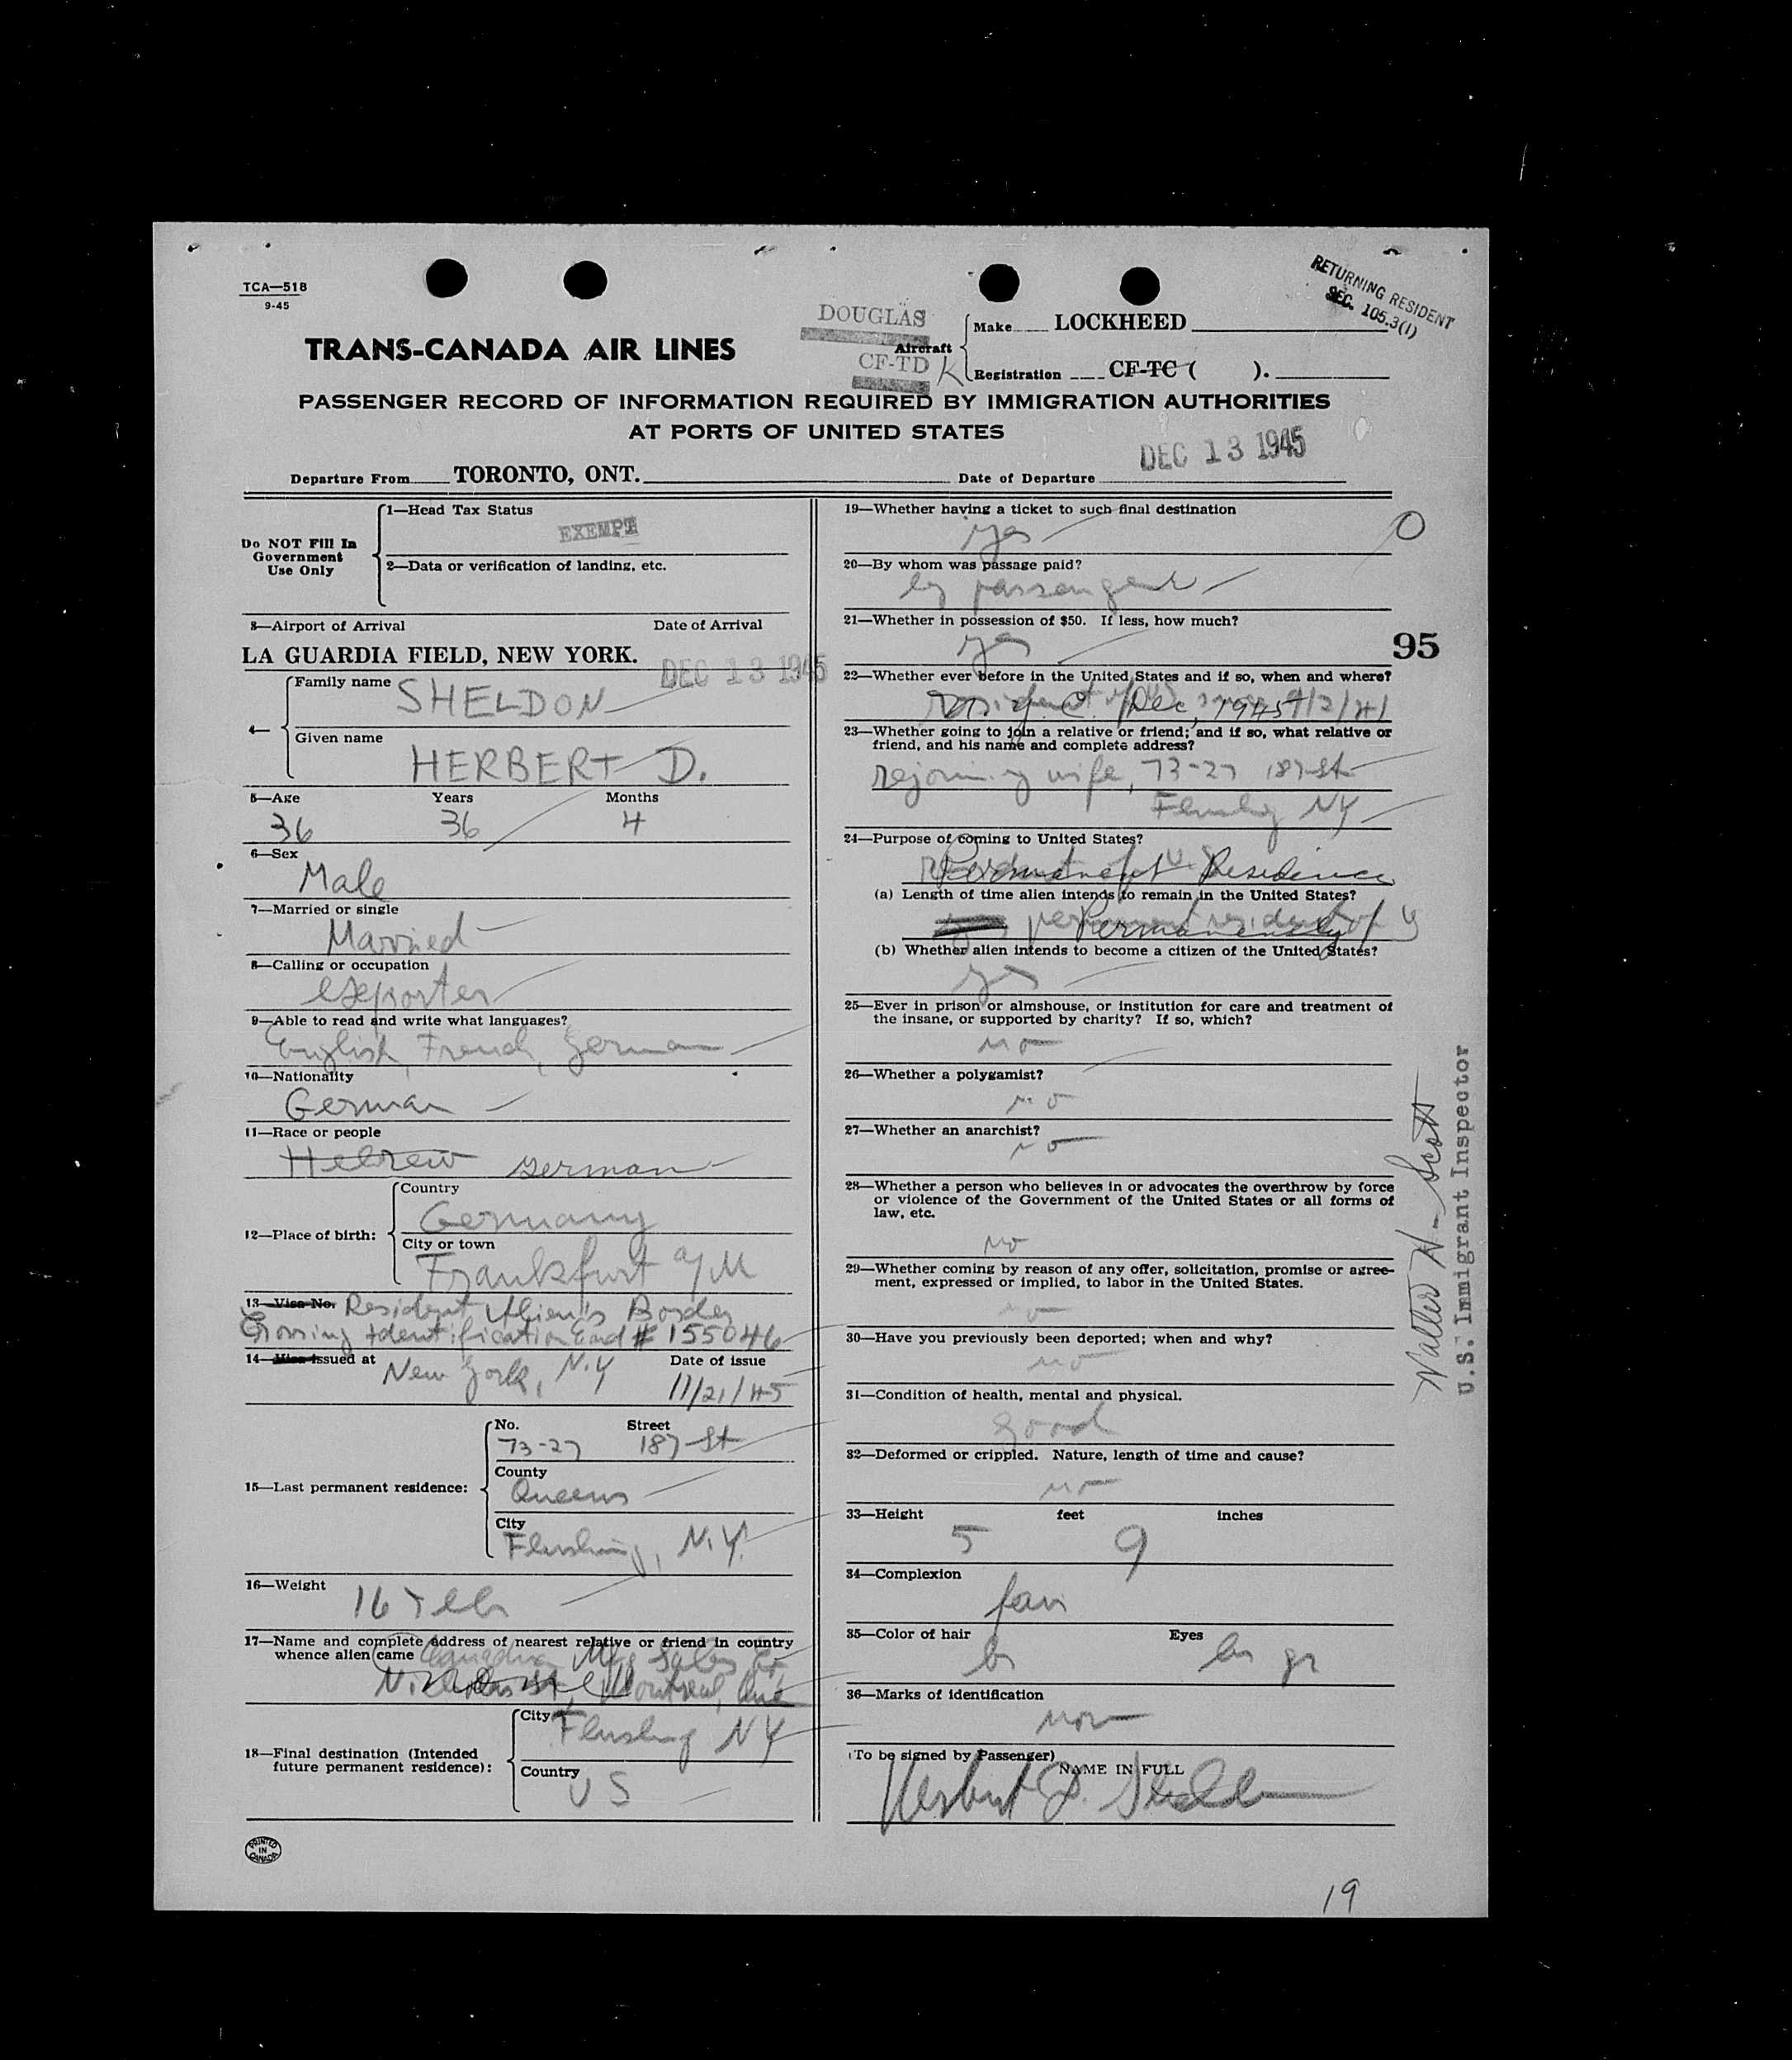 TCA—518
9-45
RETURNING RESIDENT
SEC. 105.3(1)
TRANS-CANADA AIR LINES
DOUGLAS
CF-TD K
Aircraft
Make LOCKHEED
Registration CF-TC ( ).
PASSENGER RECORD OF INFORMATION REQUIRED BY IMMIGRATION AUTHORITIES
AT PORTS OF UNITED STATES
Departure From TORONTO, ONT. Date of Departure DEC 13 1945
Do NOT Fill In
Government
Use Only
1—Head Tax Status
EXEMPT
2—Data or verification of landing, etc.
3—Airport of Arrival Date of Arrival
LA GUARDIA FIELD, NEW YORK. DEC 13 1945
4—
Family name SHELDON
Given name
HERBERT D.
5—Age Years Months
36 36 4
6—Sex
Male
7—Married or single
Married
8—Calling or occupation
exporter
9—Able to read and write what languages?
English, French, German
10—Nationality
German
11—Race or people
Hebrew German
12—Place of birth:
Country
Germany
City or town
Frankfurt a/M
13—Visa No. Resident Alien's Border
Crossing Identification Card # 155046
14—Visa issued at New York, N.Y Date of issue
11/21/45
15—Last permanent residence:
No. Street
73-27 187-St
County
Queens
City
Flushing, N.Y.
16—Weight
17—Name and complete address of nearest relative or friend in country
whence alien came Canadian Mfg Sales
Montreal, Que
18—Final destination (Intended
future permanent residence):
City Flushing NY
Country
US
PRINTED
IN
CANADA
19—Whether having a ticket to such final destination
yes
20—By whom was passage paid?
by passenger
21—Whether in possession of $50. If less, how much?
yes
95
22—Whether ever before in the United States and if so, when and where?
Dec, 1945
23—Whether going to join a relative or friend; and if so, what relative or
friend, and his name and complete address?
rejoining wife, 73-27 187-St
Flushing NY
24—Purpose of coming to United States?
Permanent Residence
(a) Length of time alien intends to remain in the United States?
Permanently
(b) Whether alien intends to become a citizen of the United States?
yes
25—Ever in prison or almshouse, or institution for care and treatment of
the insane, or supported by charity? If so, which?
no
26—Whether a polygamist?
no
27—Whether an anarchist?
no
28—Whether a person who believes in or advocates the overthrow by force
or violence of the Government of the United States or all forms of
law, etc.
no
29—Whether coming by reason of any offer, solicitation, promise or agree-
ment, expressed or implied, to labor in the United States.
no
30—Have you previously been deported; when and why?
no
31—Condition of health, mental and physical.
good
32—Deformed or crippled. Nature, length of time and cause?
no
33—Height feet inches
5 9
34—Complexion
fair
35—Color of hair Eyes
br br gr
36—Marks of identification
non
(To be signed by Passenger)
NAME IN FULL
Herbert D. Sheldon
Walter N. Scott
U.S. Immigrant Inspector
19